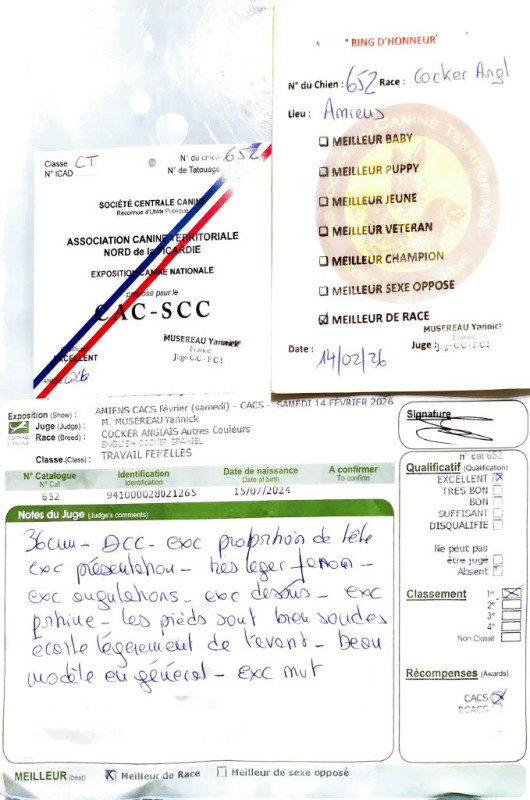 "RING D'HONNEUR"
N° du Chien : 652 Race : Cocker Angl
Lieu : Amiens
MEILLEUR BABY
MEILLEUR PUPPY
MEILLEUR JEUNE
MEILLEUR VETERAN
MEILLEUR CHAMPION
MEILLEUR SEXE OPPOSE
MEILLEUR DE RACE
MUSEREAU Yannick
France
Date : Juge CC-FCI
14/02/26
Classe CT N° du chien 652
N° ICAD N° de Tatouage
SOCIÉTÉ CENTRALE CANINE
Reconnue d'Utilité Publique
ASSOCIATION CANINE TERRITORIALE
NORD de la PICARDIE
EXPOSITION CANINE NATIONALE
proposé pour le
CAC-SCC
MUSEREAU Yannick
France
EXCELLENT Juge CC-FCI
ANNÉE 2026
Exposition (Show) : AMIENS CACS Février (samedi) - CACS - SAMEDI 14 FÉVRIER 2026
Juge (Judge) : M. MUSEREAU Yannick
Race (Breed) : COCKER ANGLAIS Autres Couleurs
ENGLISH COCKER SPANIEL
Classe (Class) : TRAVAIL FEMELLES
CENTRALE CANINE
N° Catalogue Identification Date de naissance A confirmer
N° Cat Identification Date of birth To confirm
652 941000028021265 15/07/2024
Notes du Juge (Judge's comments)
36cm - DCC - exc proportion de tête
exc présentation - très léger fanon -
exc angulations - exc dessus - exc
poitrine - les pieds sont bien soudés
écarte légèrement de l'avant - beau
modèle en général - exc mvt
MEILLEUR (best) Meilleur de Race Meilleur de sexe opposé
Signature
n° cat 652
Qualificatif (Qualification)
EXCELLENT
TRES BON
BON
SUFFISANT
DISQUALIFIÉ
Ne peut pas
être jugé
Absent
Classement 1er
2e
3e
4e
Non Classé
Récompenses (Awards)
CACS
RCACS